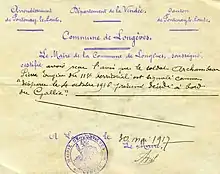 Arrondissement
de Fontenay-le-Comte
Département de la Vendée
Canton
de Fontenay-le-Comte
Commune de Longèves.
Le Maire de la Commune de Longèves, soussigné
certifie avoir reçu l'avis que le soldat Archambeau
Pierre Eugène du 114e territorial est signalé comme
"disparu le 4 octobre 1916 présumé décédé à bord
du Gallia"
A Longèves, le 30 mai 1917
Le Maire,